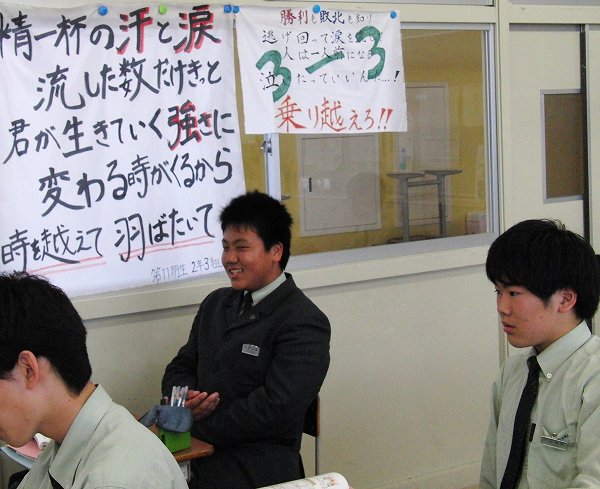 精一杯の汗と涙
流した数だけきっと
君が生きていく強さに
変わる時がくるから
時を越えて 羽ばたいて
第11期生 2年3組
勝利も敗北も知り
逃げ回って涙を
人は一人前になる
泣いたっていいんだ……!
3-3
乗り越えろ!!